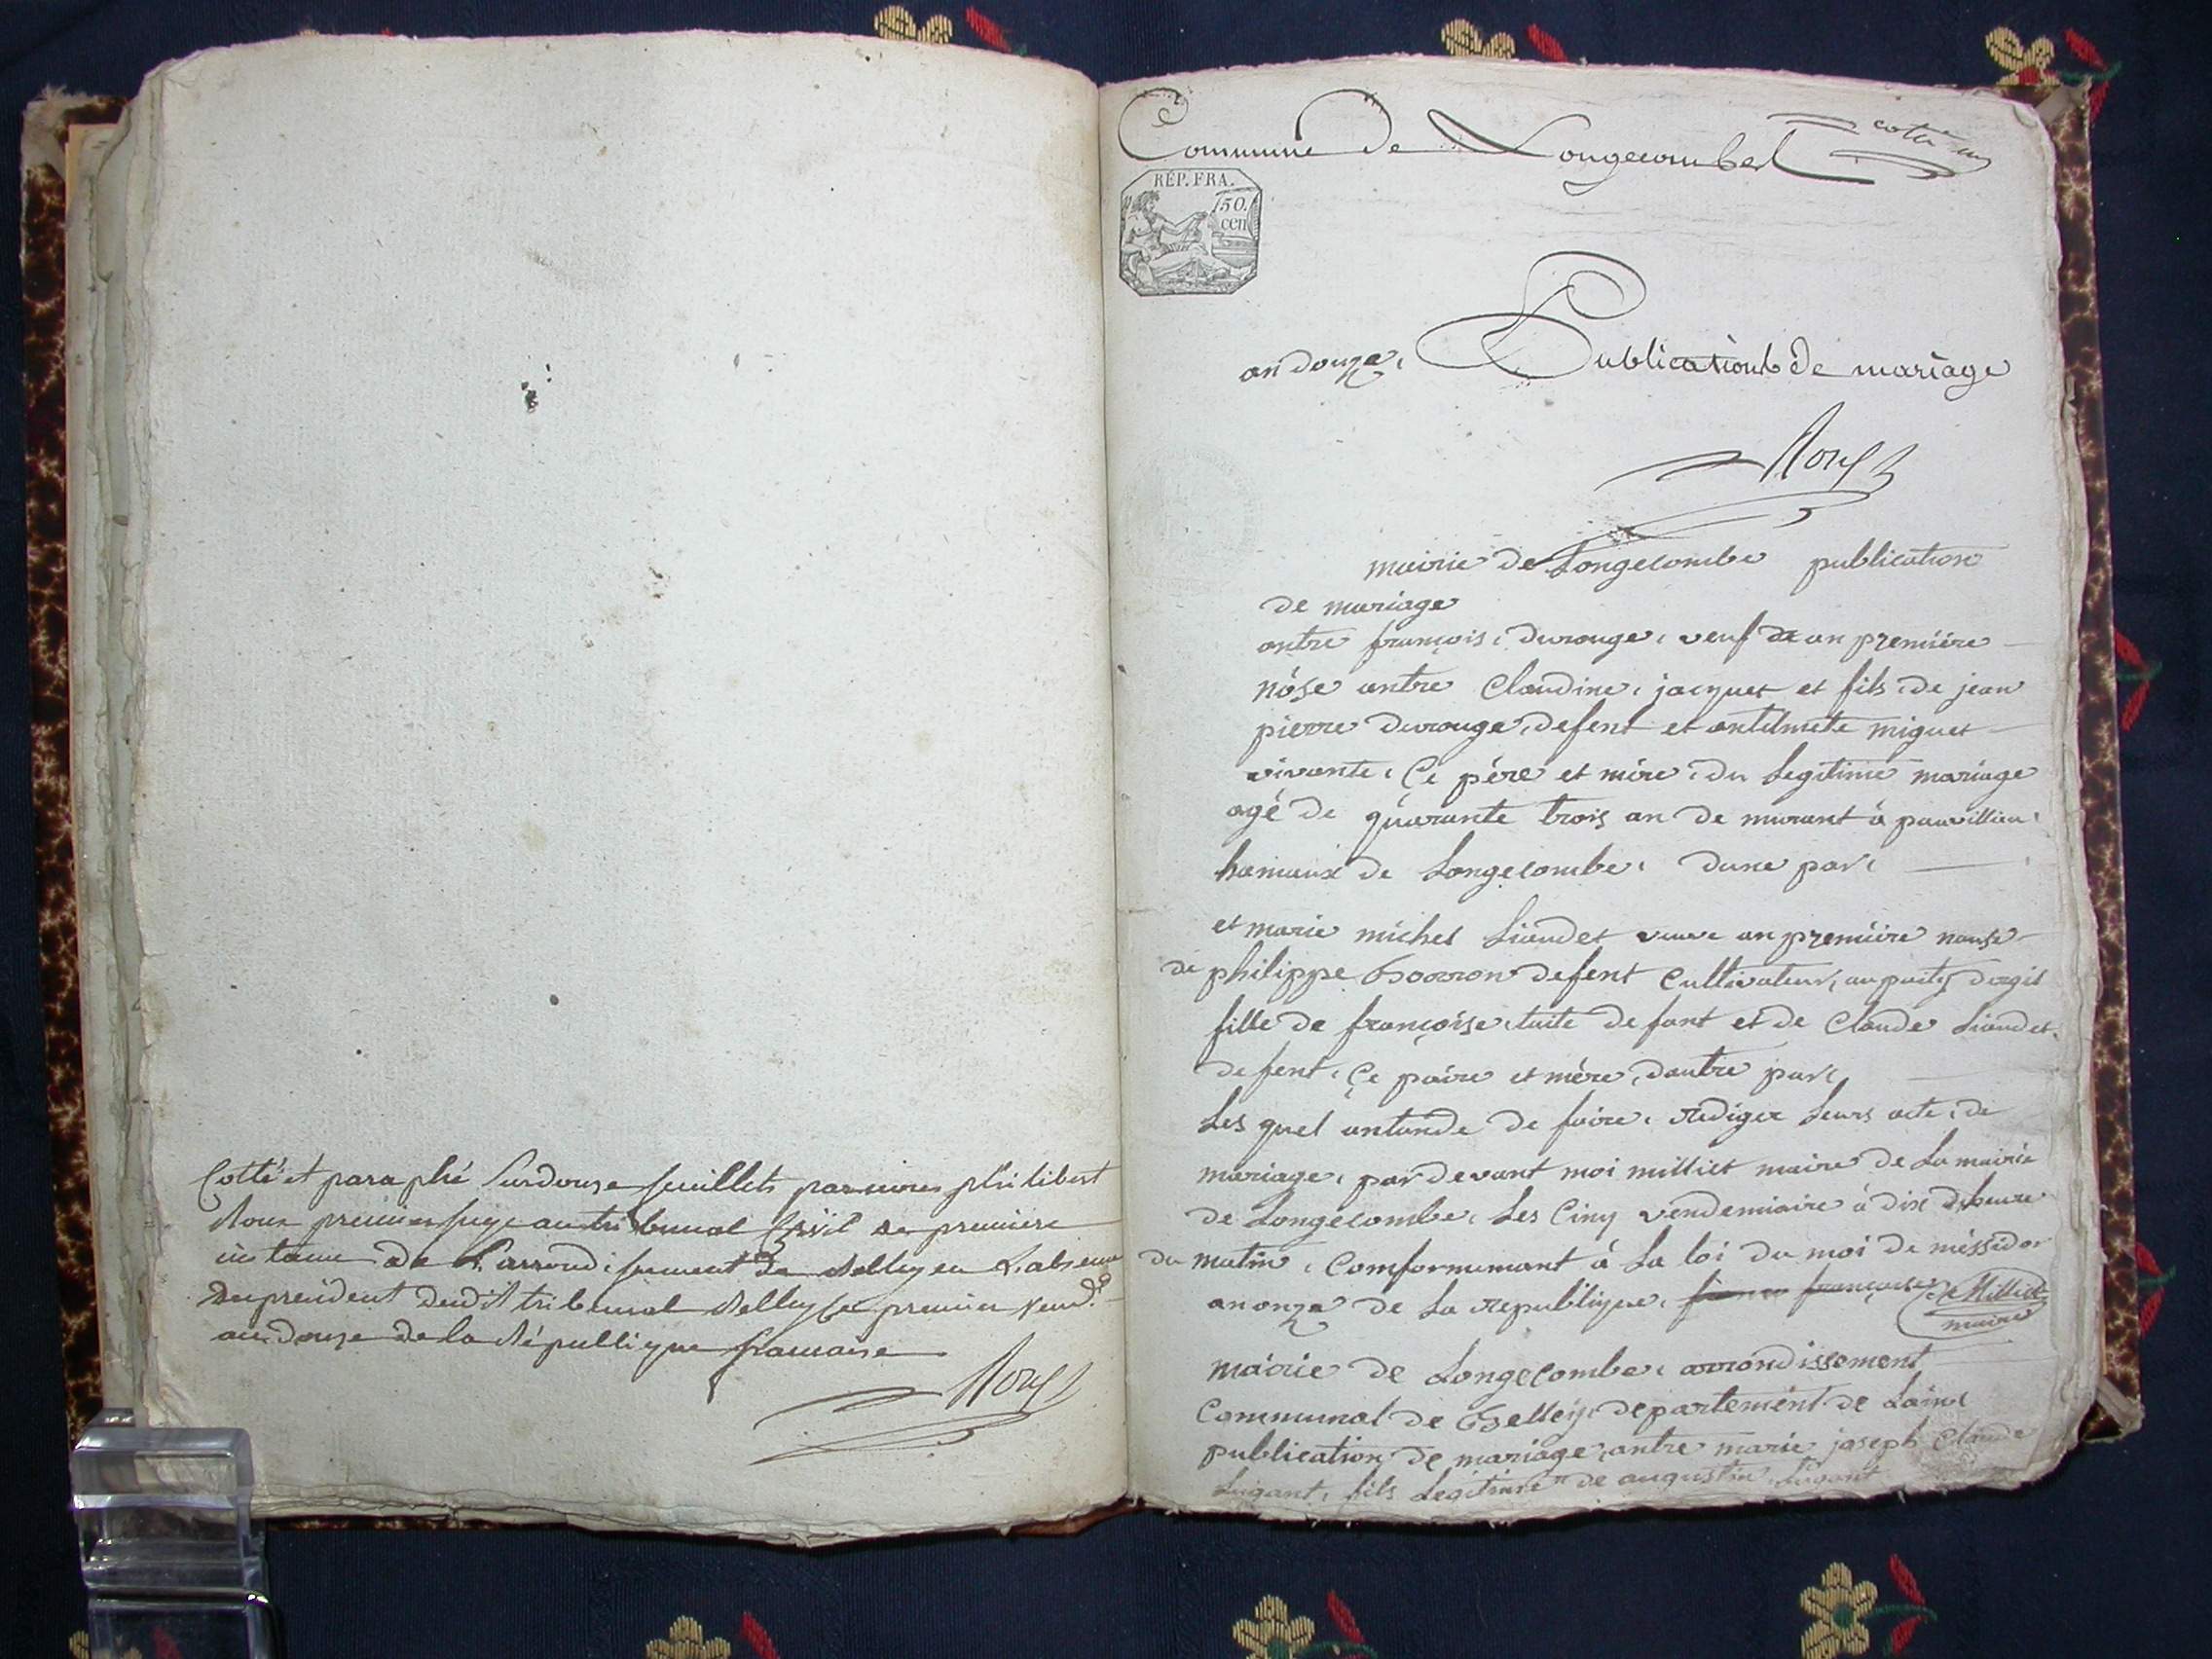 Cotté et paraphé Sur douze feuillets par nous philibert
Roux premier juge au tribunal Civil de premiere
instance de L'arrondissement de Belley en L'absence
du président dudit tribunal Belley le premier vend.re
an douze de la République francaise
Roux
Commune de Longecombe
cotté un
RÉP. FRA.
150.
cen
an douze, Publications de mariage
Roux
mairie de Longecombe publication
de mariage
antre françois, durouge, veuf de an premiére
nóse antre Claudine, jacquet et fils de jean
pierre durouge, defent et antelmete miguet
vivante, Çe pére et mére, du Legitime mariage
agé de quarante trois an de murant á pauvillieu
hamaux de Longecombe, dune part
et marie michel Liaudet veuve an premiére nause
de philippe Borron defent Cultivateur, au puity dergis
fille de françoise tuite defant et de Claude Liaudet
defent, Çe paire et mére, dautre part,
Les quel antande de faire, rediger Leurs acte de
mariage, par devant moi milliet maire de La mairie
de Longecombe, Les Cinq vendemiaire á dix dheure
du matin, Comformemant á La loi du moi de méssidor
an onze de La republique, française Milliet
maire
mairie de Longecombe, arrondissement
Communal de Belleÿ, departement de Lain
publication de mariage, antre marie joseph Claude
Lugant, fils Legitime de augustin Lugant